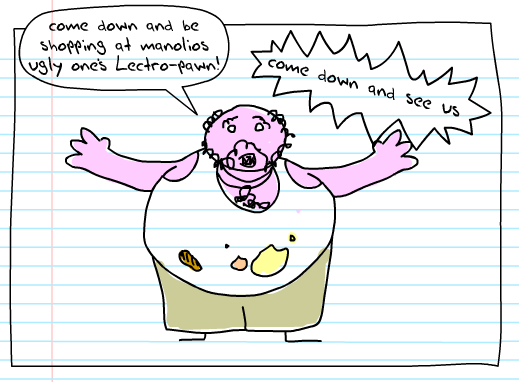 come down and be
shopping at manolios
ugly one's Lectro-pawn!
come down and see us